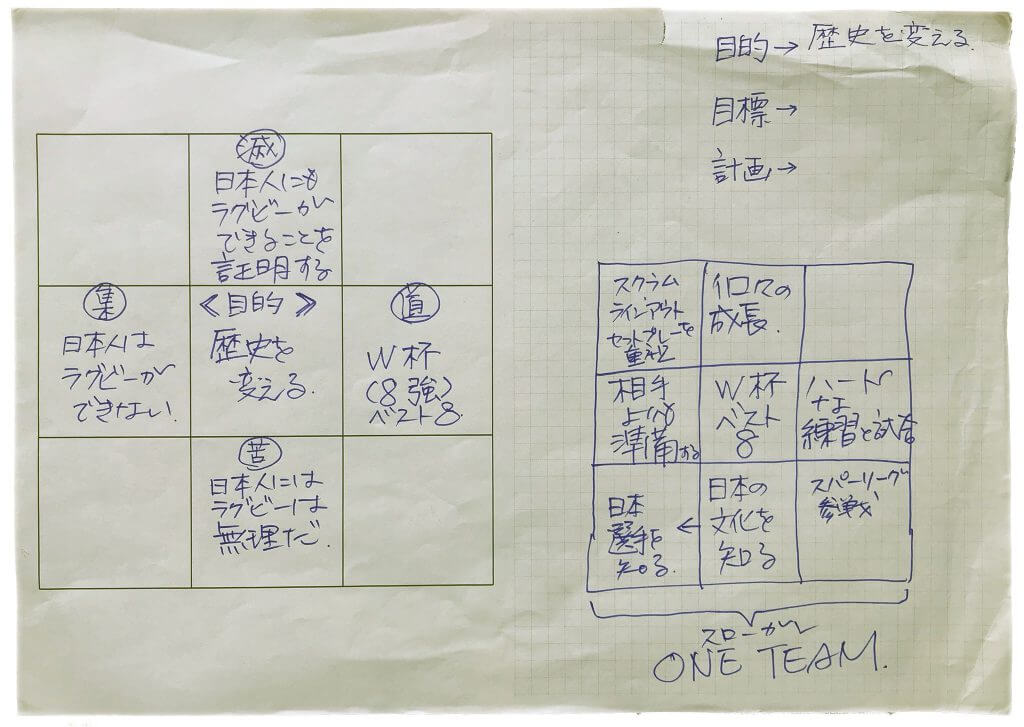 滅
日本人にも
ラグビーが
できることを
証明する
集
日本人は
ラグビーが
できない.
《目的》
歴史を
変える.
道
W杯
(8強)
ベスト8.
苦
日本人には
ラグビーは
無理だ.
目的→ 歴史を変える.
目標→
計画→
スクラム
ラインアウト
セットプレーを
重視
個々の
成長.
相手
よりも
準備する
W杯
ベスト
8
ハード
な
練習と試合
日本
選手を
知る.
←
日本の
文化を
知る
スパーリーグ
参戦
スローガン
ONE TEAM.